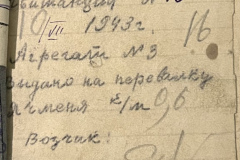 Квитанция №
10/VII 1943г. 16
Агрегат №3
Выдано на перевалку
ячменя к/м 0,6
Возчик: